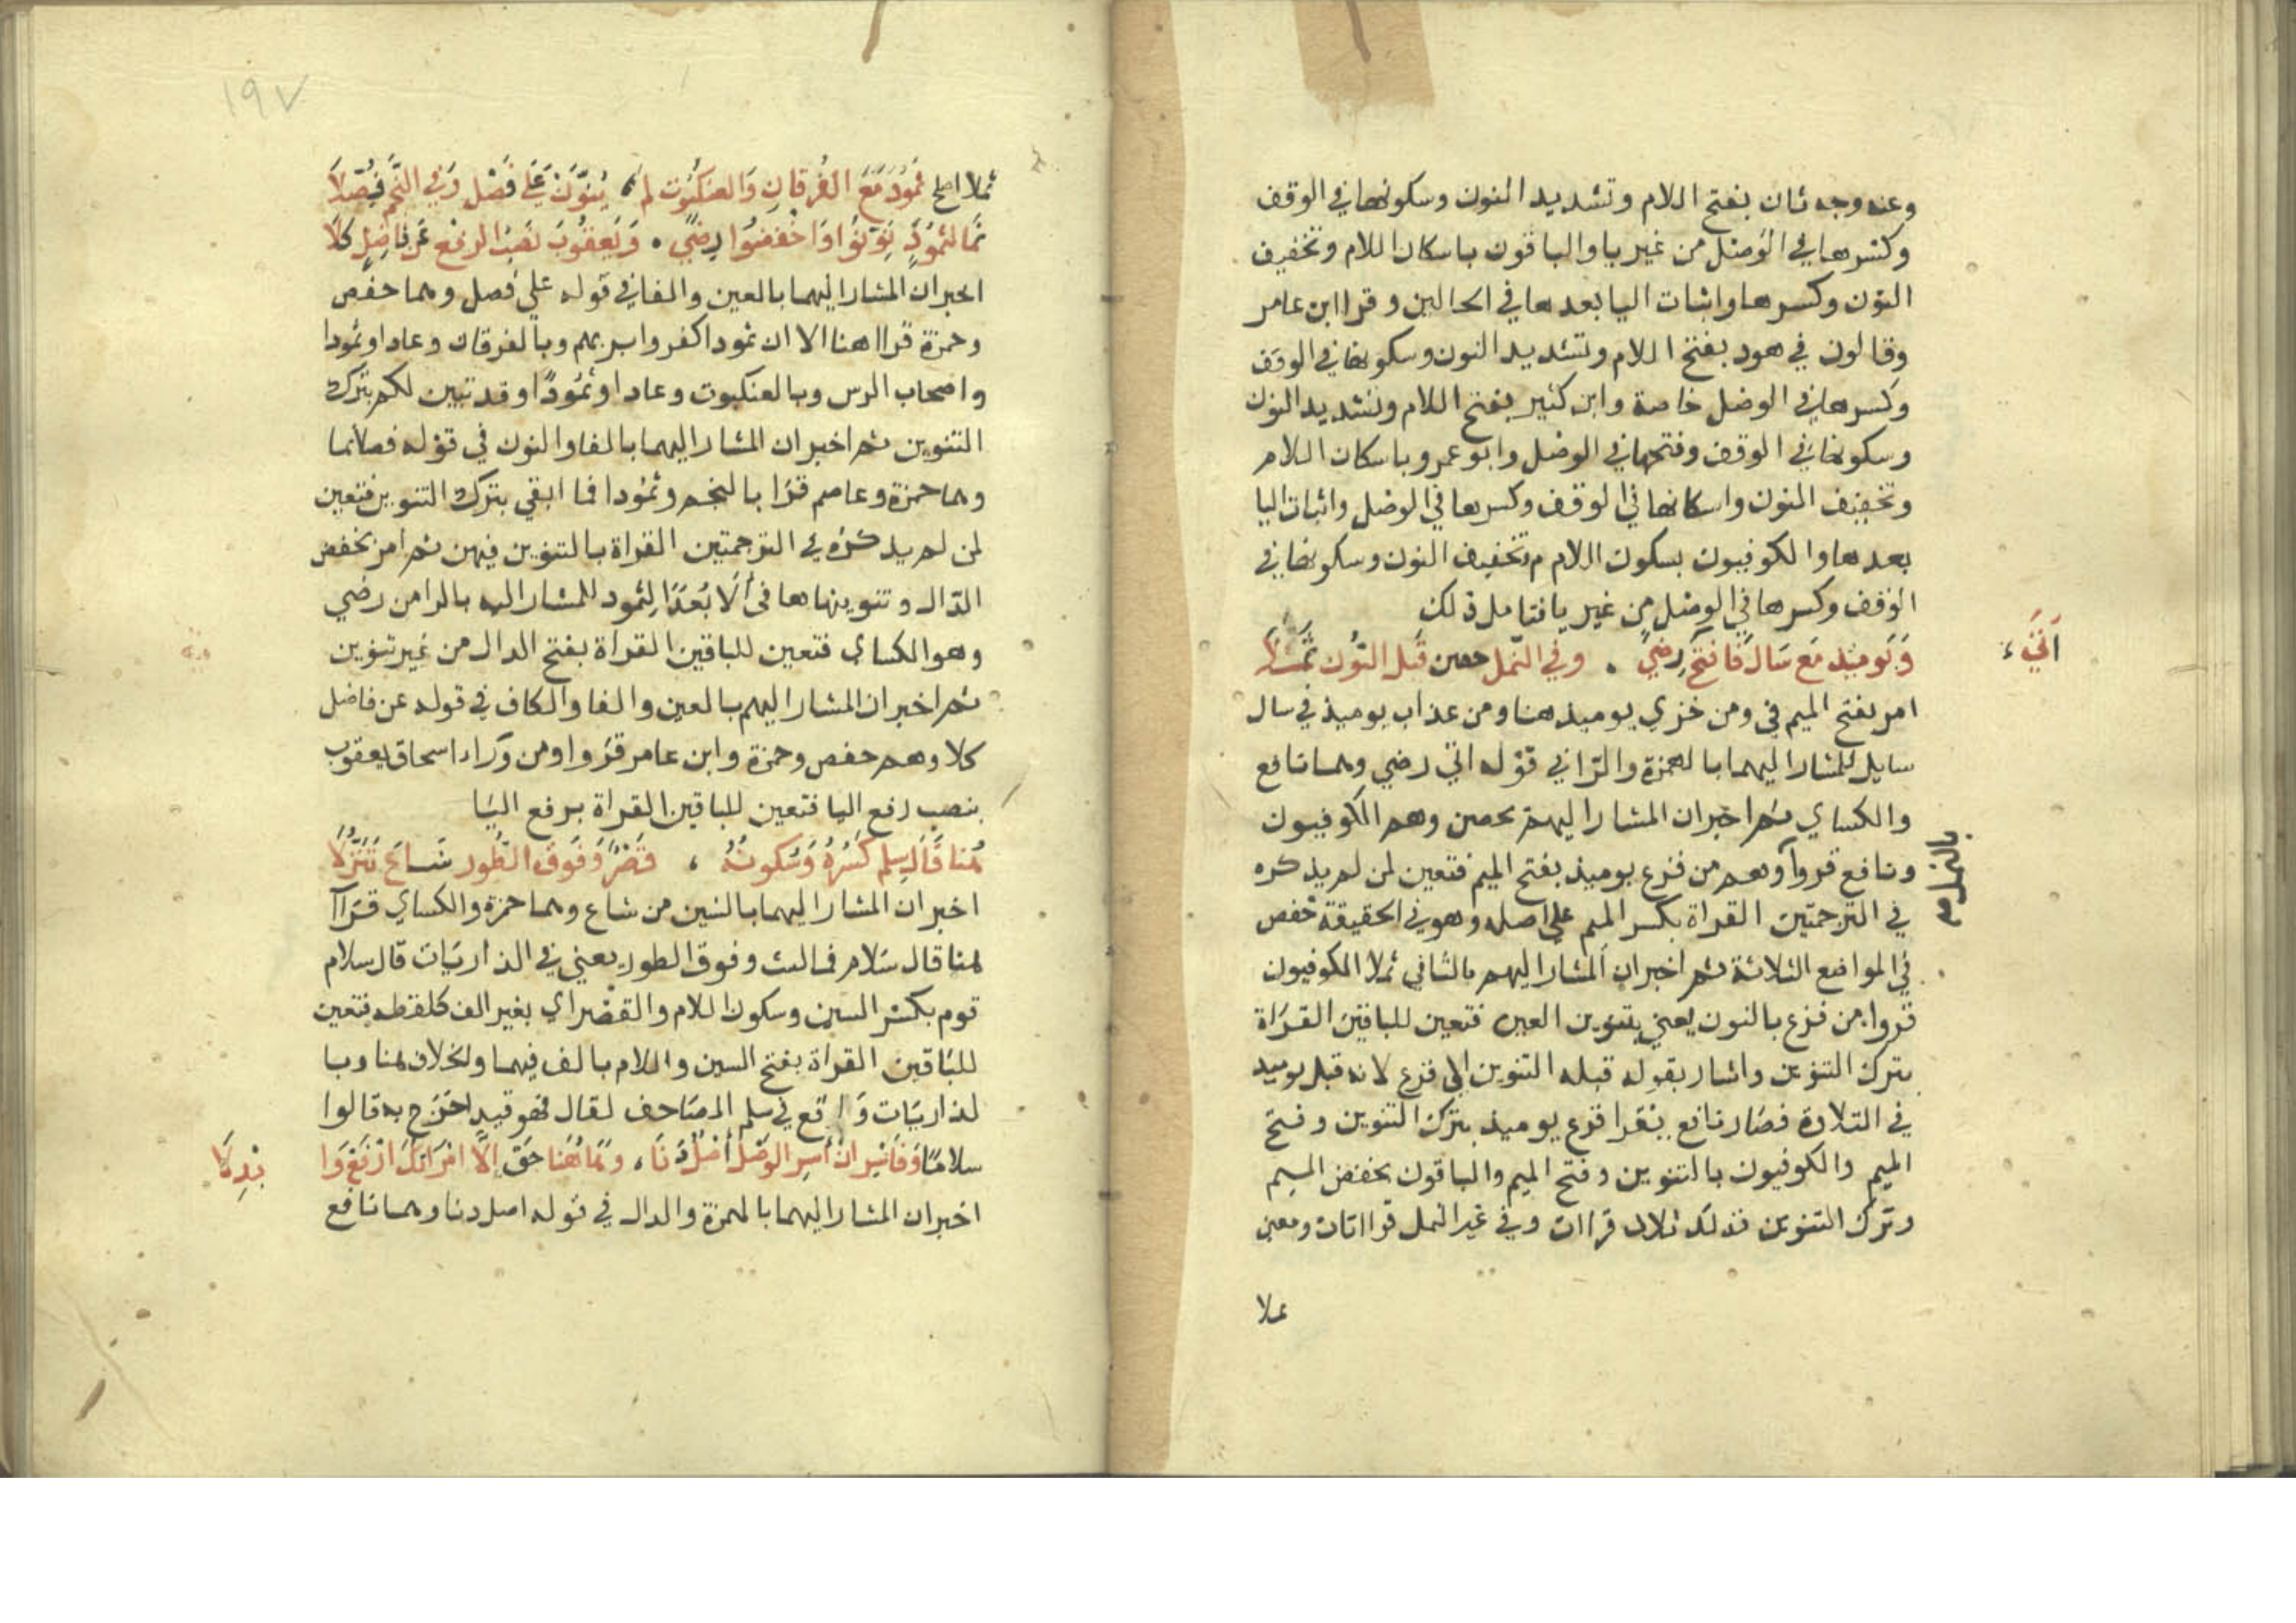 وعنه وجه ثان بفتح اللام وتشديد النون وسكونها في الوقف
وكسرها في الوصل من غير يا والباقون باسكان اللام وتخفيف
النون وكسرها واثبات اليا بعدها في الحالين وقرا ابن عامر
وقالون في هود بفتح اللام وتشديد النون وسكونها في الوقف
وكسرها في الوصل خاصة وابن كثير بفتح اللام وتشديد النون
وسكونها في الوقف وفتحها في الوصل وابو عمرو باسكان اللام
وتخفيف النون واسكانها في الوقف وكسرها في الوصل واثبات اليا
بعدها والكوفيون بسكون اللام وتخفيف النون وسكونها في
الوقف وكسرها في الوصل من غير يا فتامل ذلك
وَيَوميذ مَع سَالَ فَافتَح رِضيً . وفي النمل حصن قَبل النُّون ثُمّلَا
اَتَي
امر بفتح الميم في ومن خزي يوميذ هنا ومن عذاب يوميذ في سال
سايل للمشار اليهما بالهمزة والرا في قوله اتي رضي وهما نافع
والكساي ثم اخبر ان المشار اليهم بحصن وهم الكوفيون
ونافع قروا وهم من فزع يوميذ بفتح الميم فتعين لمن لم يذكره
في الترجمتين القراة بكسر الميم علي اصله وهو في الحقيقة خفض
في المواضع الثلاثة ثم اخبر ان المشار اليهم بالثا في ثملا الكوفيون
قروا من فزع بالنون يعني بتنوين العين فتعين للباقين القراة
بترك التنوين واشار بقوله قبله التنوين الي فزع لانه قبل يوميذ
في التلاوة فصار نافع يقرا فزع يوميذ بترك التنوين وفتح
الميم والكوفيون بالتنوين وفتح الميم والباقون بخفض الميم
وترك التنوين فذلك ثلاث قراات وفي غير النمل قرااتان ومعني
ثملا
١٩٧
ثملا اصلح ثَمُودَ مَعَ الفُرقَانِ وَالعنكبُوت لم يُنوَّنْ عَلَي فَصْلٍ وَفي النَّجم فُصِّلَا
نَمَا لثمُودٍ نَوِّنُوا وَاخفضُوا رِضيً . وَيَعقُوبُ نَصبُ الرفع عَن فَاضِلٍ كَلَا
اخبر ان المشار اليهما بالعين والفا في قوله علي فصل وهما حفص
وحمزة قراا هنا الا ان ثمودا كفروا بربهم وبالفرقان وعادا وثمودا
واصحاب الرس وبالعنكبوت وعادا وثمُودًا وقد تبين لكم بترك
التنوين ثم اخبر ان المشار اليهما بالفا والنون في قوله فصلا نما
وهما حمزة وعاصم قرا بالنجم وثمودا فما ابقي بترك التنوين فتعين
لمن لم يذكره في الترجمتين القراة بالتنوين فيهن ثم امر بخفض
الدال وتنوينها في أَلا بُعدًا لِثمود للمشار اليه بالرا من رضي
وهو الكساي فتعين للباقين القراة بفتح الدال من غير تنوين
ثم اخبر ان المشار اليهم بالعين والفا والكاف في قوله عن فاضل
كلا وهم حفص وحمزة وابن عامر قروا ومن وَرَاء اسحاق يعقوب
بنصب رفع البا فتعين للباقين القراة برفع البَا
هُنا قَالَ سِلم كَسرُهُ وَسُكونُهُ ، وقَصْرٌ وَفَوقَ الطُّور شَاعَ تَنَزُّلَا
اخبر ان المشار اليهما بالشين من شاع وهما حمزة والكساي قراآ
هنا قال سَلام فما لبث وفوق الطور يعني في الذاريات قال سلام
قوم بكسر السين وسكون اللام والقصر اي بغير الف كلفظه فتعين
للباقين القراة بفتح السين واللام بالف فيهما ولا خلاف هنا وبا
لذاريات وَ قع في سلم المصاحف لقال فهو قيد اخرج به قالوا
سلامًا وَفَاسْرِ انْ أَسرِ الوَصْلُ أَصْلٌ دَنَا ، وَهَاهُنَا حَقٌّ اِلَّا امْرَاتُكَ ارْفَعْ وَا
بْدِلَا
اخبر ان المشار اليهما بالهمزة والدال في قوله اصل دنا وهما نافع